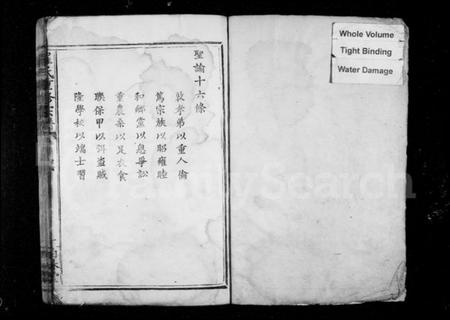 聖諭十六條
敦孝弟以重人倫
篤宗族以昭雍睦
和鄉黨以息爭訟
重農桑以足衣食
聯保甲以弭盜賊
隆學校以端士習
Whole Volume
Tight Binding
Water Damage
FamilySearch